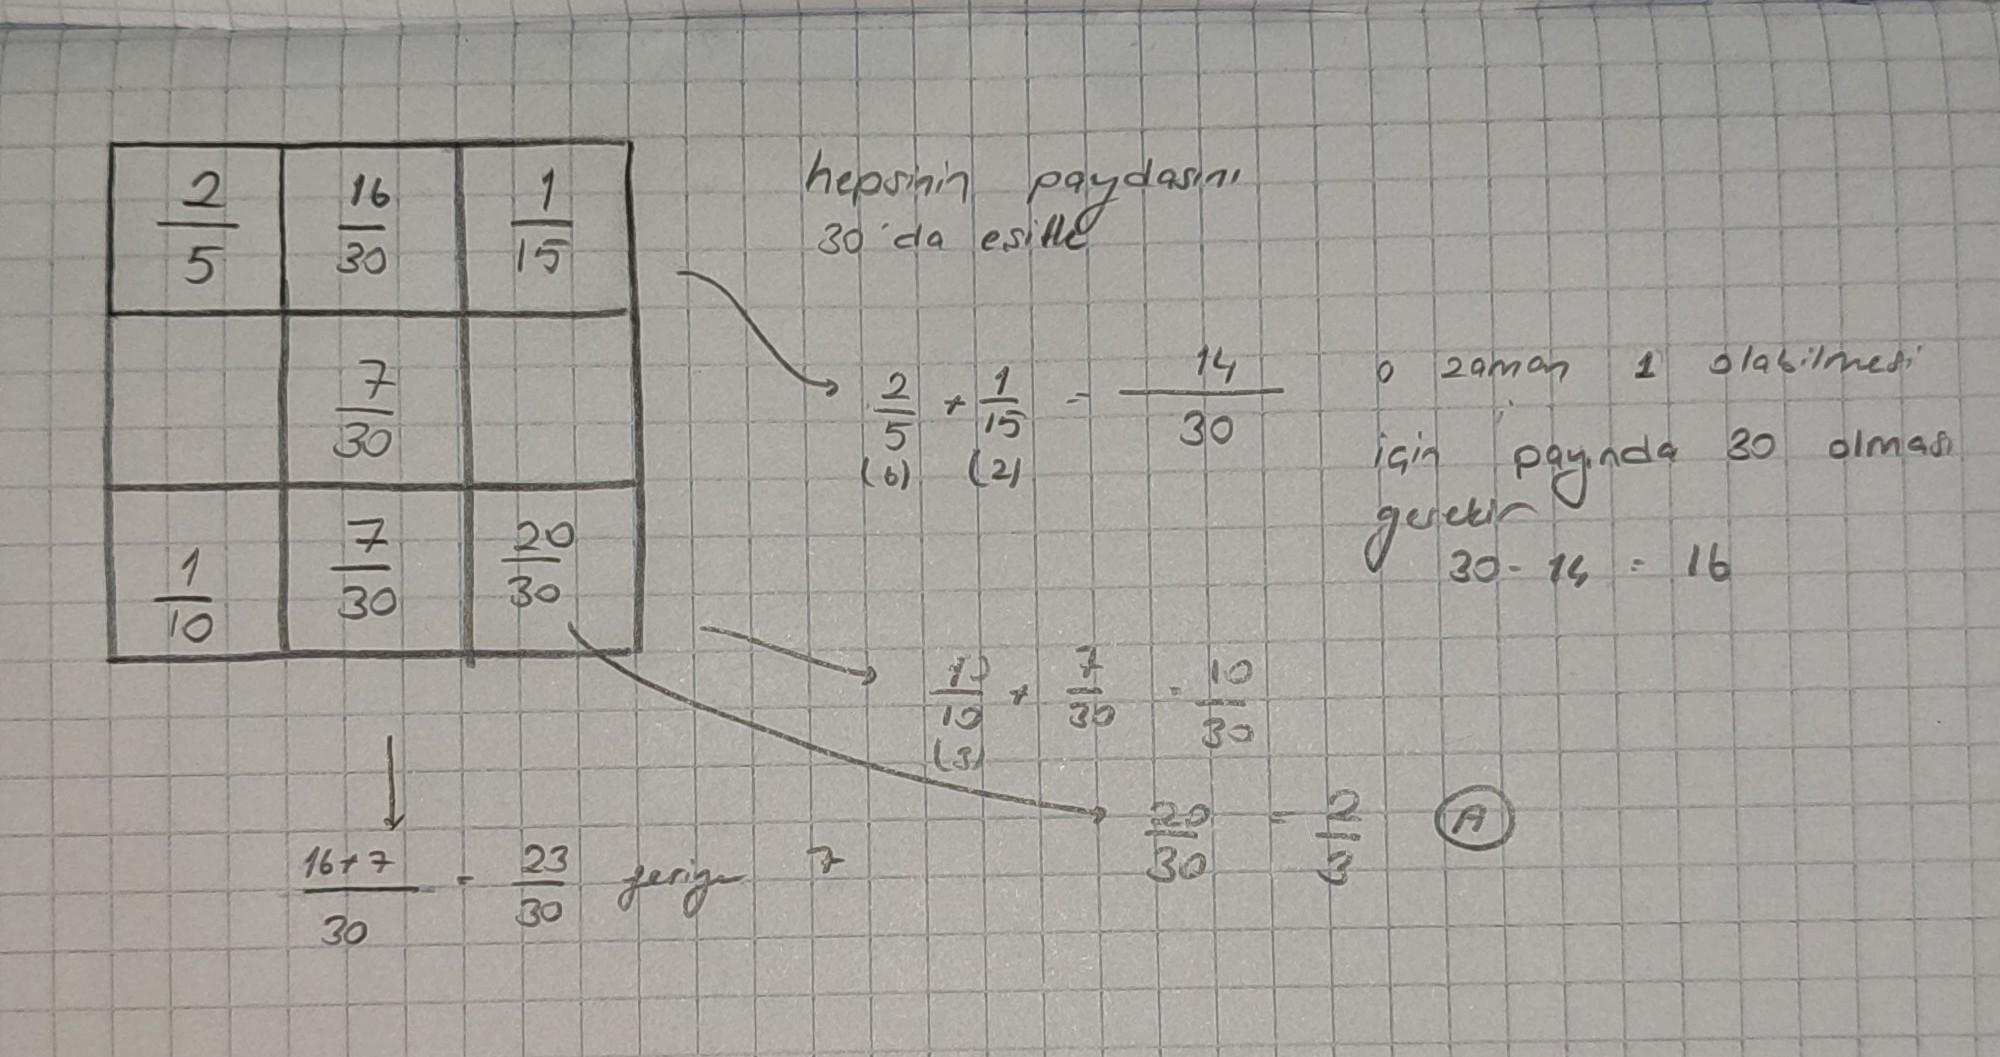 2/5 16/30 1/15
7/30
1/10 7/30 20/30
hepsinin paydasını
30'da esitle
2/5 + 1/15 = 14/30
(6) (2)
o zaman 1 olabilmesi
için payında 30 olması
gerekir
30 - 14 = 16
7/30 = 10/30
(3)
20/30 = 2/3 A
16+7/30 = 23/30 geriye 7